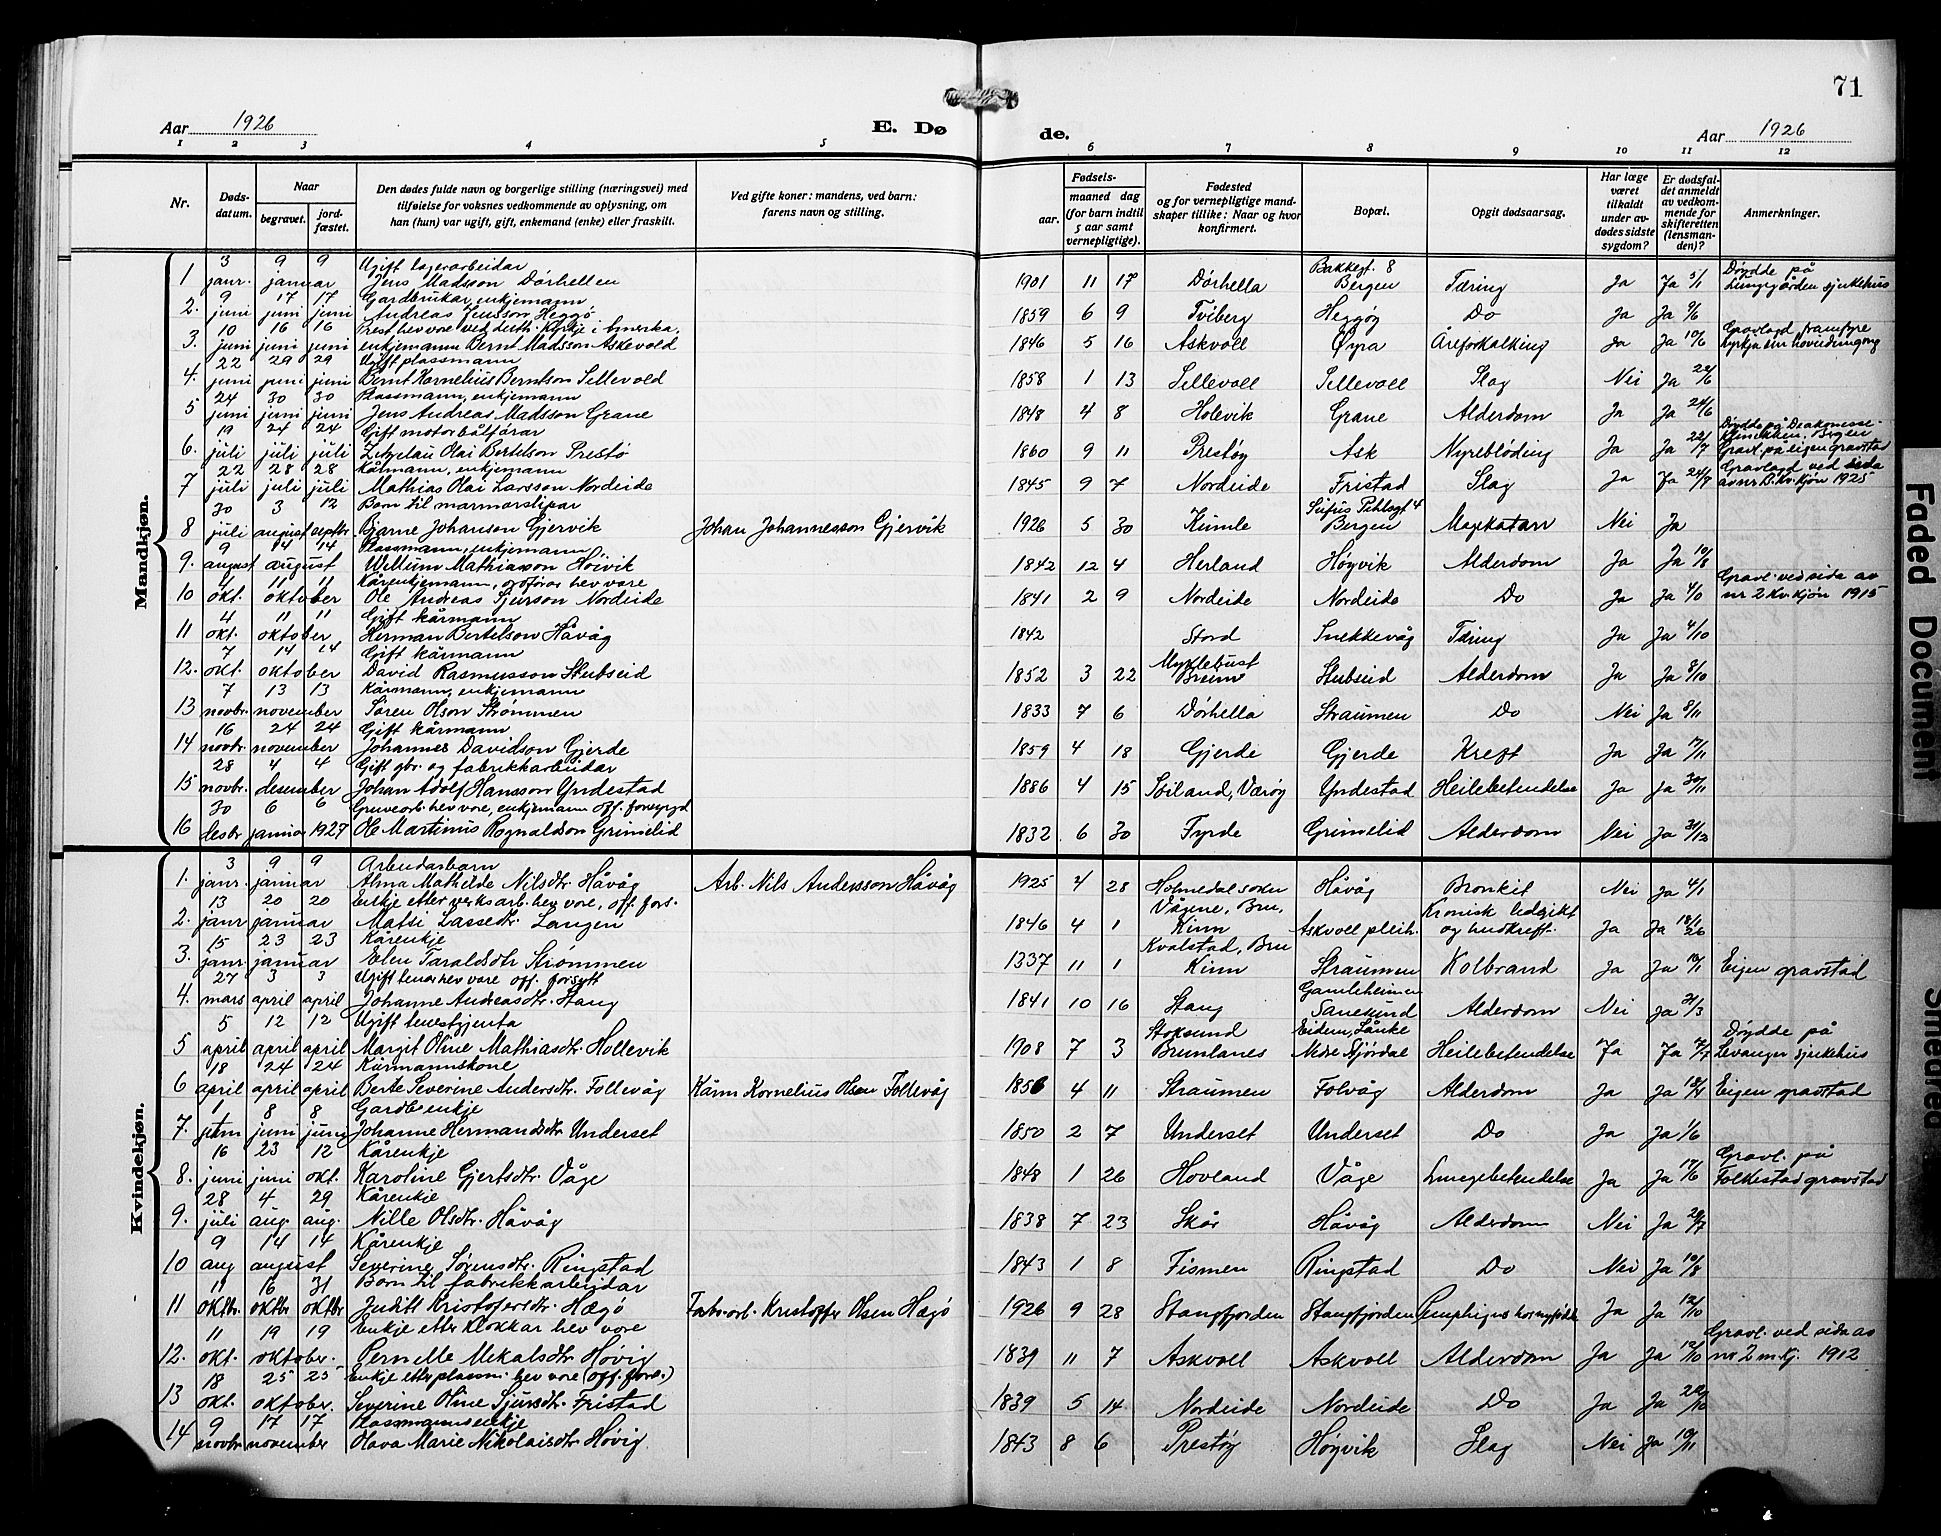 71
Aar 1926
E. Dø
de.
Aar 1926
1 2 3 4 5 6 7 8 9 10 11 12
Nr.
Døds-datum.
Naar
begravet.
jord-fæstet.
Den dødes fulde navn og borgerlige stilling (næringsvei) med tilføielse for voksnes vedkommende av oplysning, om han (hun) var ugift, gift, enkemand (enke) eller fraskilt.
Ved gifte koner: mandens, ved barn: farens navn og stilling.
Fødsels-
aar.
maaned dag
(for barn indtil 5 aar samt vernepligtige).
Fødested og for vernepligtige mand-skaper tillike: Naar og hvor konfirmert.
Bopæl.
Opgit dødsaarsag.
Har læge været tilkaldt under av-dødes sidste sygdom?
Er dødsfal-det anmeldt av vedkom-mende for skifteretten (lensman-den)?
Anmerkninger.
Mandkjøn.
3 9 9 Ugift lagerarbeidar Bakkegt. 8 Døydde på
1 janr. januar Jens Madsson Dørhellen 1901 11 17 Dørhella Bergen Tæring Ja Ja 5/1 Lungegården sjukehus
9 17 17 Gardbrukar, enkjemann
2. juni juni juni Andreas Jensson Heggö 1859 6 9 Tviberg Heggøy Do Ja Ja 9/6
10 16 16 Prest hev vore ved luth. Kyrkje i Amerika, Gravlagd framfyre
3. juni juni juni enkjemann Bernt Madsson Askevold 1846 5 16 Askvoll Øyra Åreforkalking Ja Ja 10/6 kyrkja
22 29 29 Ugift plassmann
4. juni juni juni Bernt Kornelius Berntson Sellevold 1858 1 13 Sellevoll Sellevoll Slag Nei Ja 22/6
24 30 30 Plassmann, enkjemann
5 juni juni juni Jens Andreas Madsson Grane 1848 4 8 Holevik Grane Alderdom Ja Ja 24/6
19 24 24 Gift motorbåtförar Døydde på Diakonisse-
6. juli juli juli Olai Bertelson Prestö 1860 9 11 Prestøy Ask Nyreblöding Ja Ja 22/7 Gravl. på eigen gravstad
22 28 28 Kårmann, enkjemann Gravlagd ved sida
7 juli juli juli Mathias Olai Larsson Nordeide 1845 9 7 Nordeide Fristad Slag Ja Ja 24/7 av nr 8 kv.kjön 1925
30 3 12 Born til marmorslipar
8 juli august septbr. Bjarne Johanson Gjervik Johan Johannesson Gjervik 1926 5 30 Kumle Bergen Magekatarr Nei Ja
9 14 14 Plassmann, enkjemann
9. august august Willum Mathiasson Höivik 1842 12 4 Herland Høyvik Alderdom Ja Ja 10/8
4 11 11 Kårenkjemann, ordförar hev vore Gravl. ved sida av
10 okt. oktober Ole Andreas Sjurson Nordeide 1841 2 9 Nordeide Nordeide Do Ja Ja 4/10 nr 2 kv.kjön 1915
4 11 11 Gift kårmann
11 okt. oktober Herman Bertelson Håvåg 1842 Stord Snekkevåg Tæring Ja Ja 4/10
7 14 14 Gift kårmann Myklebust
12. okt. oktober David Rasmusson Stubseid 1852 3 22 Breim Stubseid Alderdom Ja Ja 8/10
7 13 13 Kårmann, enkjemann
13 novbr. november Sören Olson Strømmen 1833 7 6 Dørhella Straumen Do Nei Ja 8/11
16 24 24 Gift kårmann
14 novbr. november Johannes Davidson Gjerde 1859 4 18 Gjerde Gjerde Kreft Ja Ja 17/11
28 4 4 Gift gbr. og fabrikkarbeidar
15 novbr. desember Johan Adolf Hansson Yndestad 1886 4 15 Söiland, Værøy Yndestad Heilebetendelse Ja Ja 30/11
30 6 6 Gruvearb. hev vore, enkjemann off. forsyrgd
16 desbr januar 1927 Ole Martinus Rognaldson Grimelid 1832 6 30 Fyrde Grimelid Alderdom Nei Ja 31/12
Kvindekjøn.
3 9 9 Arbeidarbarn
1. janr. januar Alma Mathilde Nilsdtr. Håvåg Arb. Nils Andersson Håvåg 1925 4 28 Holmedal sokn Håvåg Bronkit Nei Ja 4/1
13 20 20 Enkje etter verksarb. hev vore, off. fors. Vågene, Bru, Kronisk ledgikt
2. janr januar Matsi Lassedtr. Langen 1846 4 1 Kinn Askvoll pleih. og hudkreft Ja Ja 18/1 26
15 23 23 Kårenkje Kvalstad, Bru
3. janr. januar Elen Taraldsdtr Strömmen 1837 11 1 Kinn Straumen Kolbrand Ja Ja 18/1 Eigen gravstad
27 3 3 Ugift tenar hev vore off. forsytt Gamleheimen
4. mars april april Johanne Andreasdtr. Stang 1841 10 16 Stang Sanesund Alderdom Nei Ja 31/3
5 12 12 Ugift tenestgjenta Stoksund Eidem, Lånke Døydde på
5 april april april Margit Oline Mathiasdtr. Hollevik 1908 7 3 Brunlanes Nedre Stjördal Heilebetendelse Ja Ja 7/7 Levanger sjukehus
18 24 24 Kårmannskone
6 april april april Berte Severine Andersdtr. Follevåg Kårm Kornelius Olsen Follevåg 1856 4 11 Straumen Folvåg Alderdom Ja Ja 18/4 Eigen gravstad
1 8 8 Gardbr.enkje
7. juni juni juni Johanne Hermandsdtr. Underset 1850 2 7 Underset Underset Do Ja Ja 1/6
16 23 12 Kårenkje Gravl. på
8. juni juni okt. Karoline Gjertsdtr. Våge 1848 1 26 Hovland Våge Lungebetendelse Ja Ja 17/6 Folkestad gravstad
28 4 29 Kårenkje
9. juli aug. aug. Nille Olsdtr. Håvåg 1838 7 23 Skår Håvåg Alderdom Nei Ja 29/7
9 14 14 Kårenkje
10 aug august Severine Sörensdtr. Ringstad 1843 1 8 Fismen Ringstad Do Nei Ja 10/8
11 16 31 Born til fabrikkarbeidar
11 oktbr oktbr oktbr Juditt Kristofersdtr. Hægö Fabr.arb. Kristoffer Olsen Hægö 1926 9 28 Stangfjorden Stangfjorden Ja Ja 12/10
11 19 19 Enkje etter klokkar hev vore Gravl. ved sida av
12. okt. oktober. Pernelle Mikalsdtr. Høvig 1839 11 7 Askvoll Askvoll Alderdom Ja Ja 12/10 nr 2 m.kj. 1912
18 25 25 Enkje etter plassm. hev vore (off. fors.)
13 okt. oktober. Severine Oline Sjursdtr. Fristad 1839 5 14 Nordeide Nordeide Do Ja Ja 22/10
9 17 17 Plassmannsenkje
14 novbr. november Olava Marie Nikolaisdtr. Høvig. 1843 8 6 Prestøy Høyvik Slag Nei Ja 10/11
Faded Document
Smeared